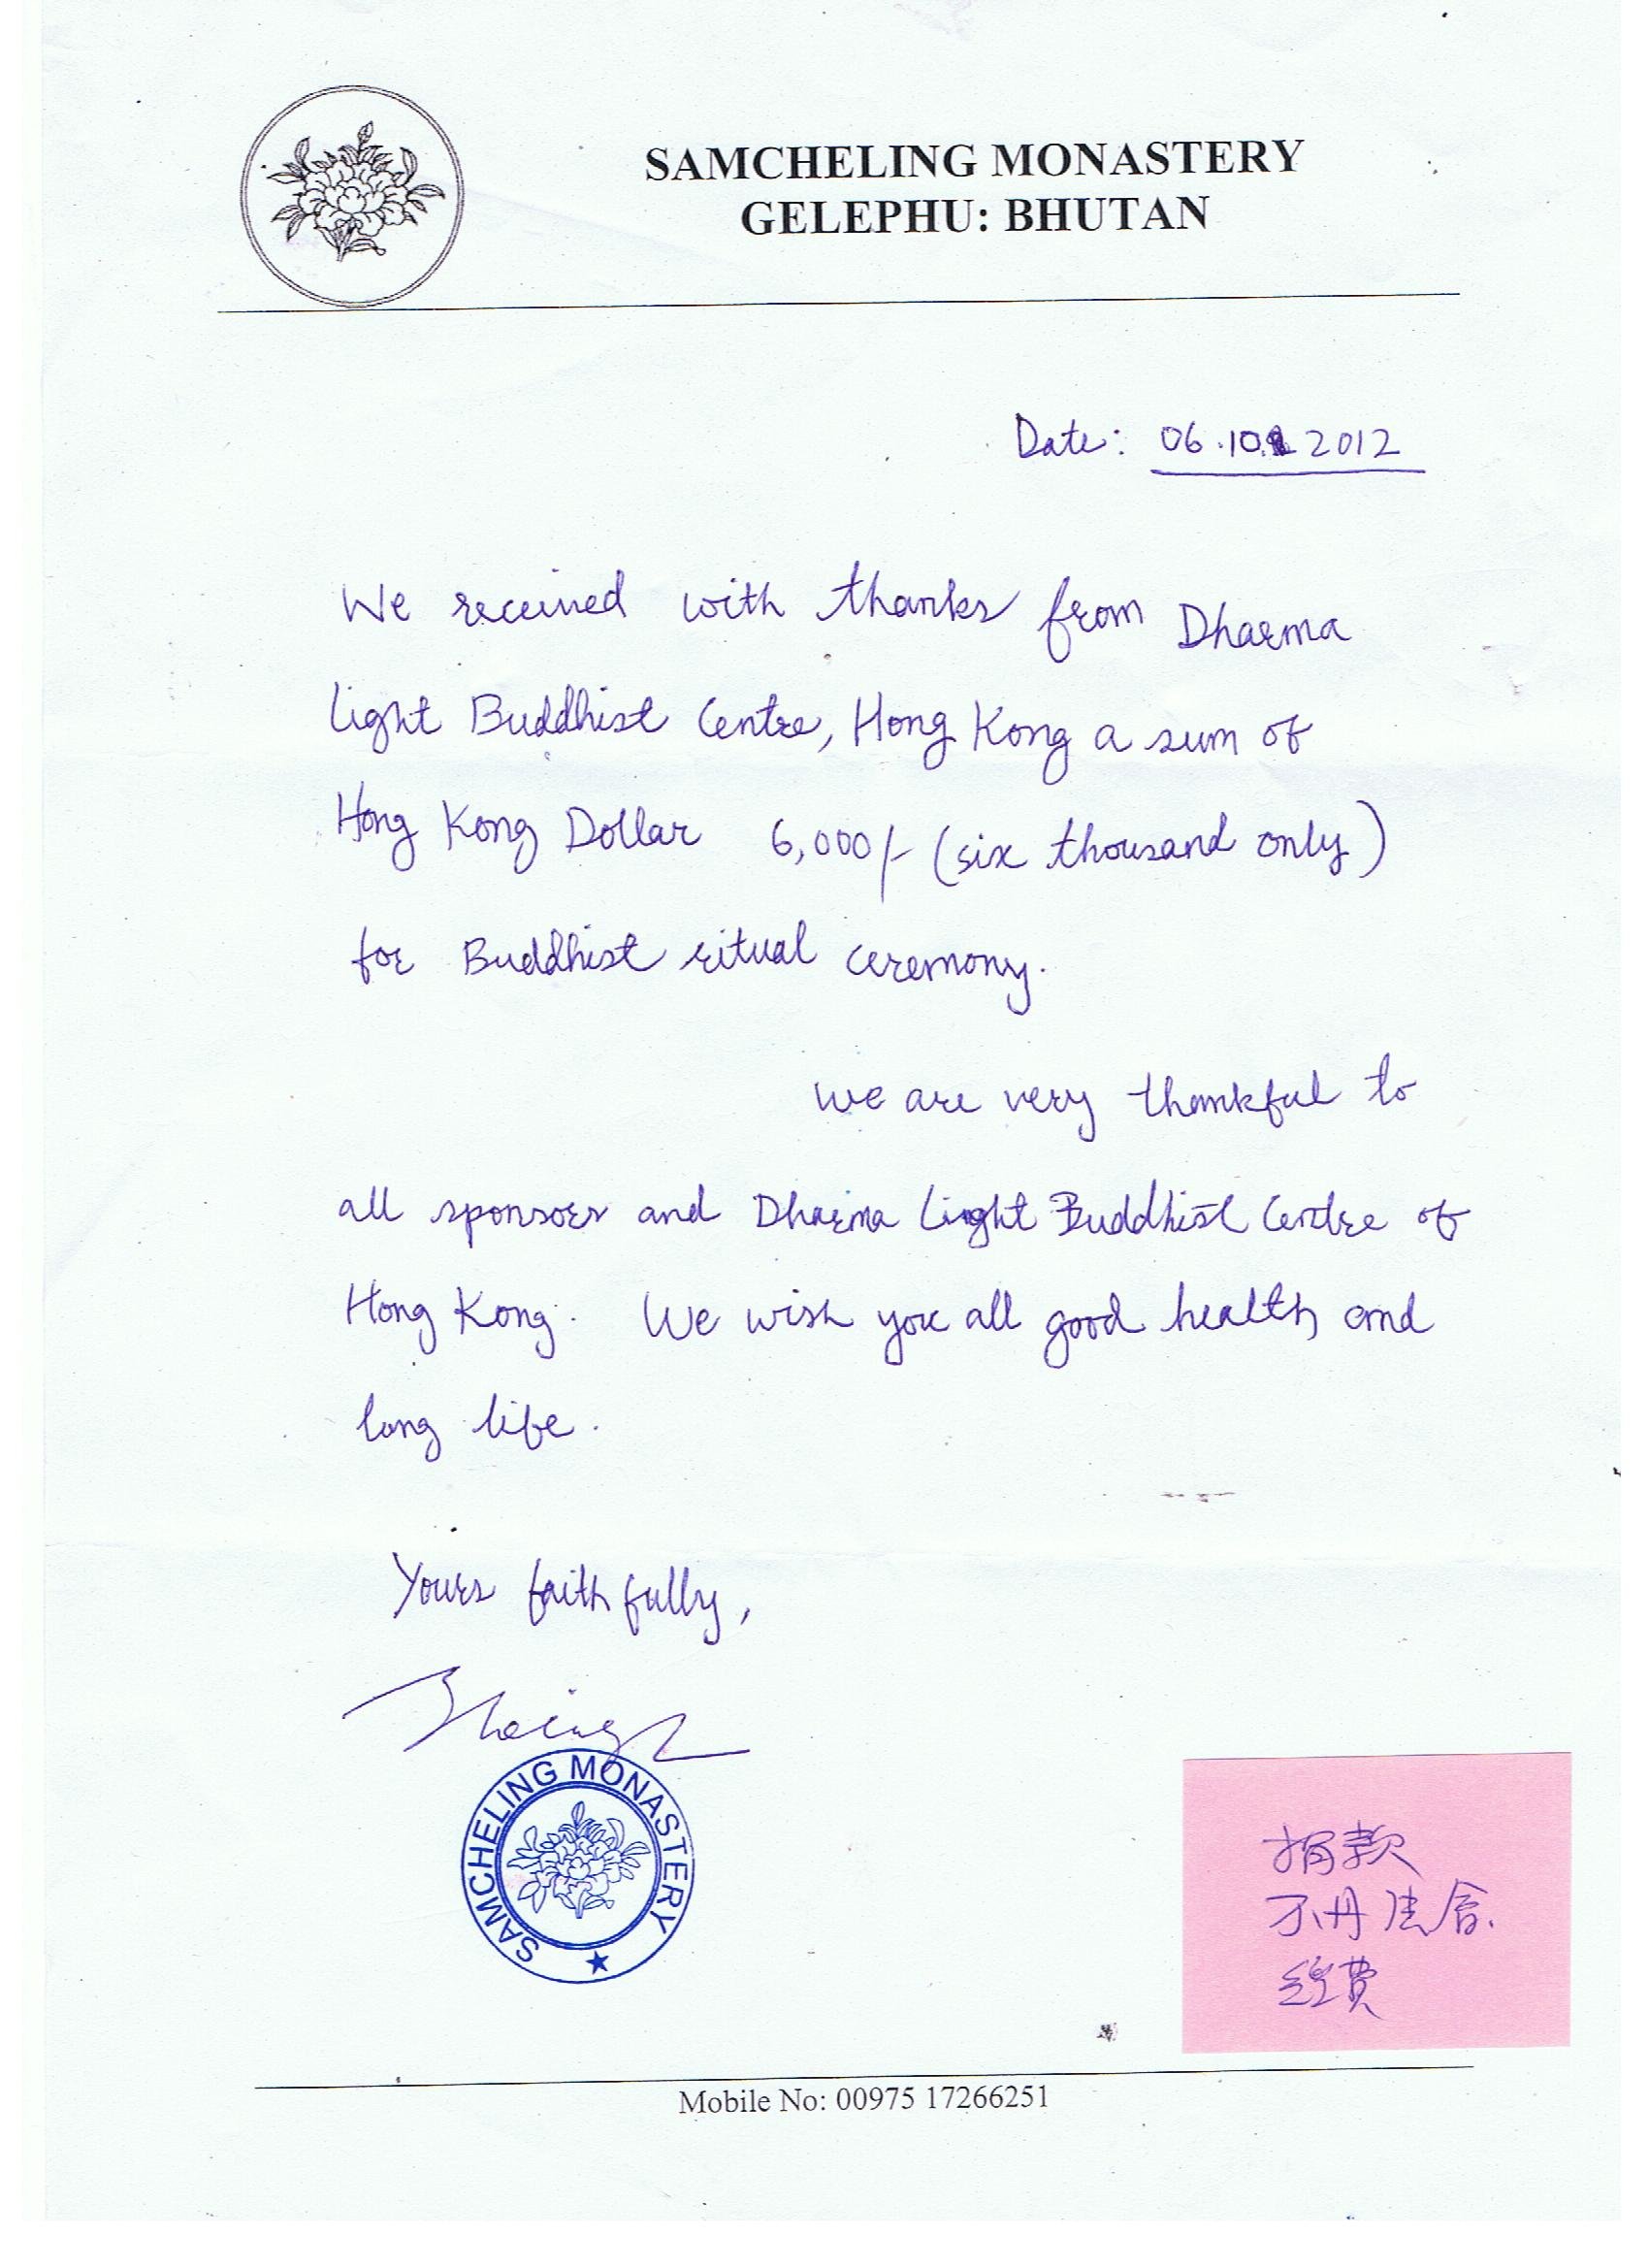 SAMCHELING MONASTERY
GELEPHU: BHUTAN
Date: 06.10. 2012
We received with thanks from Dharma
Light Buddhist Centre, Hong Kong a sum of
Hong Kong Dollar 6,000/- (six thousand only)
for Buddhist ritual ceremony.
We are very thankful to
all sponsors and Dharma Light Buddhist Centre of
Hong Kong. We wish you all good health and
long life.
Yours faithfully,
SAMCHELING MONASTERY
捐款
不丹法會
經費
Mobile No: 00975 17266251